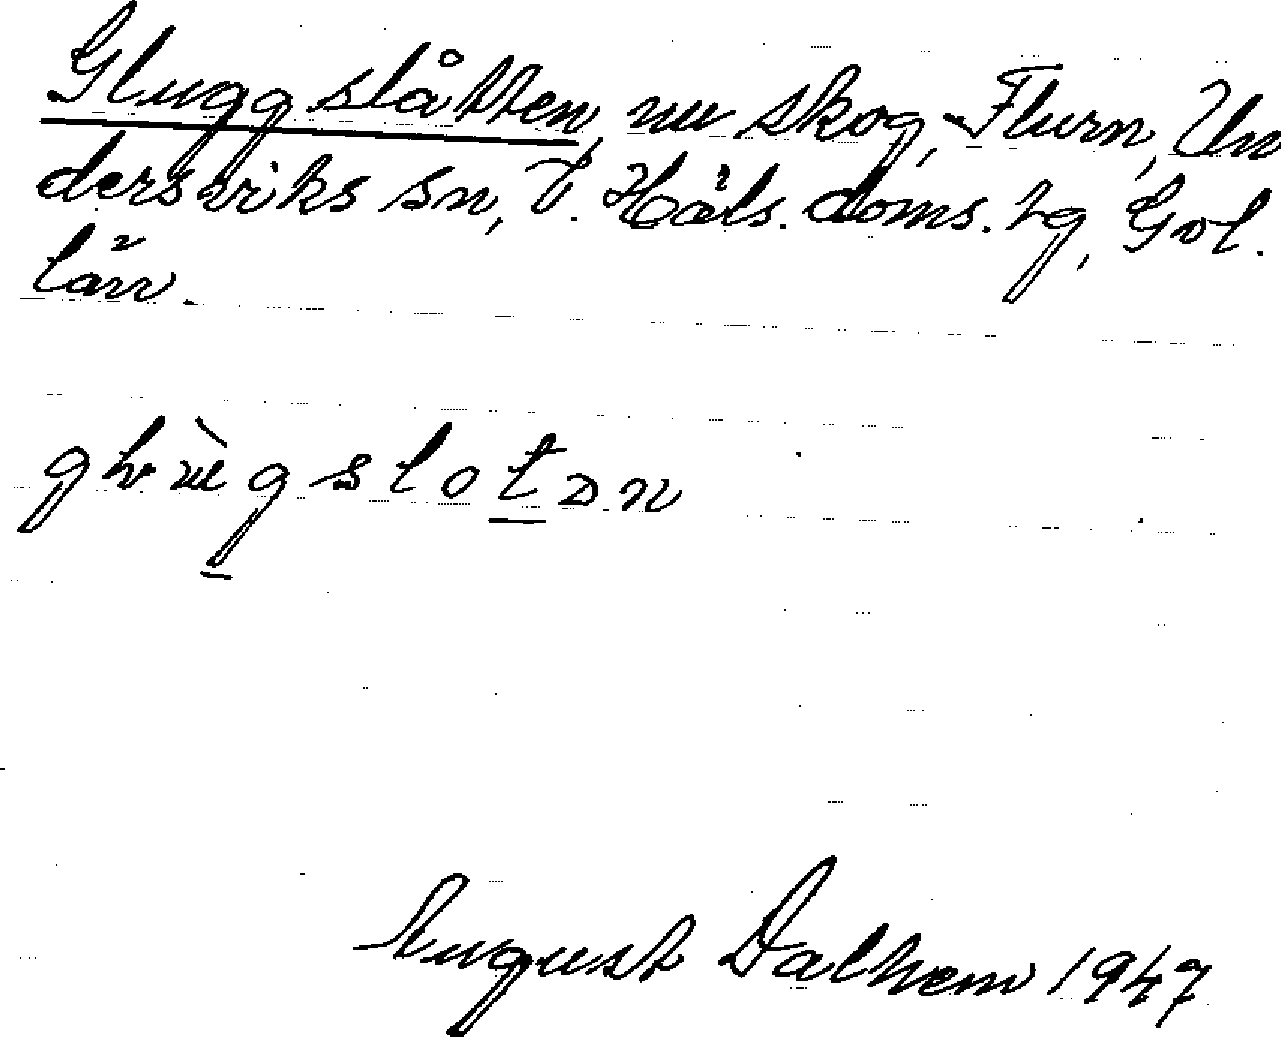 Gluggslåtten, nu skog, Flurn, Un
dersviks sn, V. Häls. doms. hg, Gvl.
län.
August Dalhem 1947